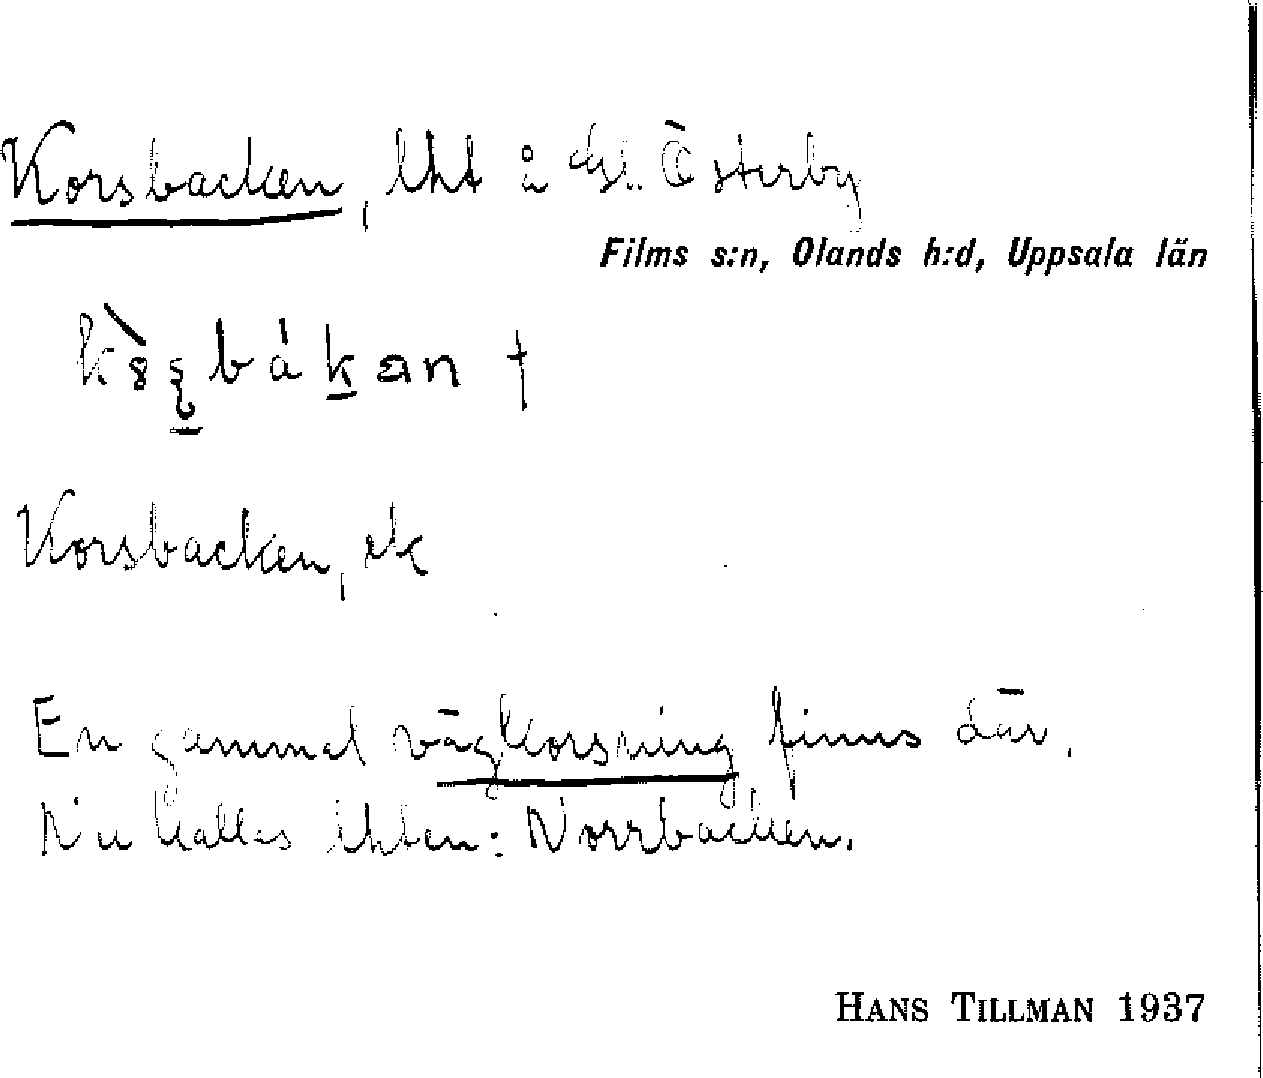 Korsbacken, lht å Gl. Österby
Films s:n, Olands h:d, Uppsala län
Korsbacken, ek
En gammal vägkorsning finns där.
Nu kallas lhten: Norrbacken.
HANS TILLMAN 1937